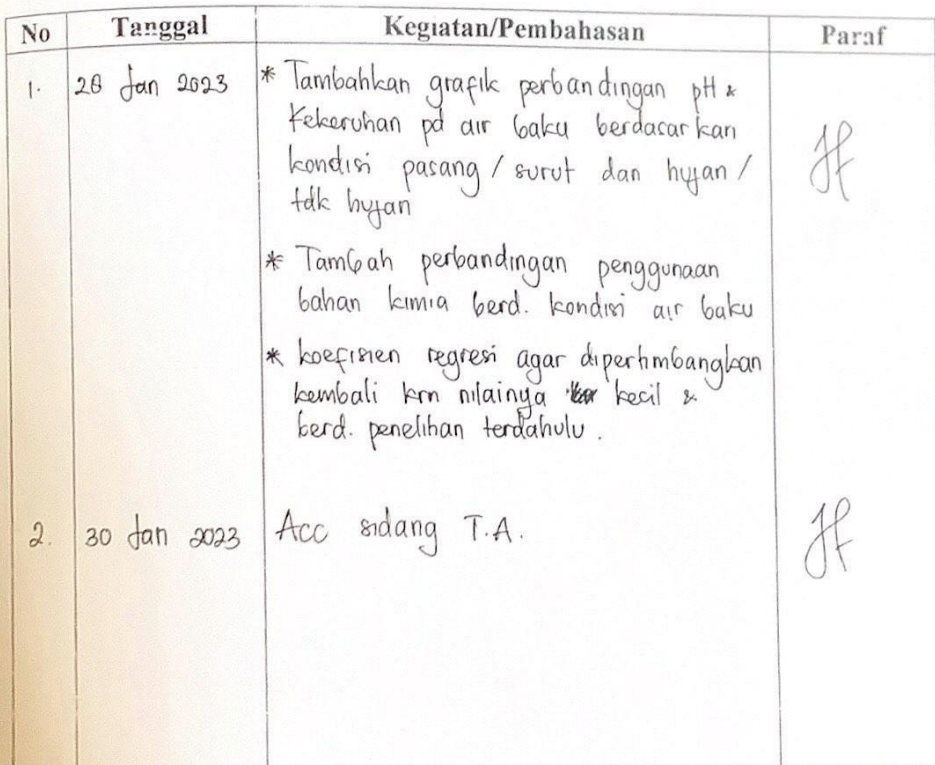 No Tanggal Kegiatan/Pembahasan Paraf
1. 26 Jan 2023 * Tambahkan grafik perbandingan pH &
Kekeruhan pd air baku berdasarkan
kondisi pasang / surut dan hujan /
tdk hujan
* Tambah perbandingan penggunaan
bahan kimia berd. kondisi air baku
* koefisien regresi agar dipertimbangkan
kembali krn nilainya kecil &
berd. penelitian terdahulu.
2. 30 Jan 2023 Acc sidang T.A.